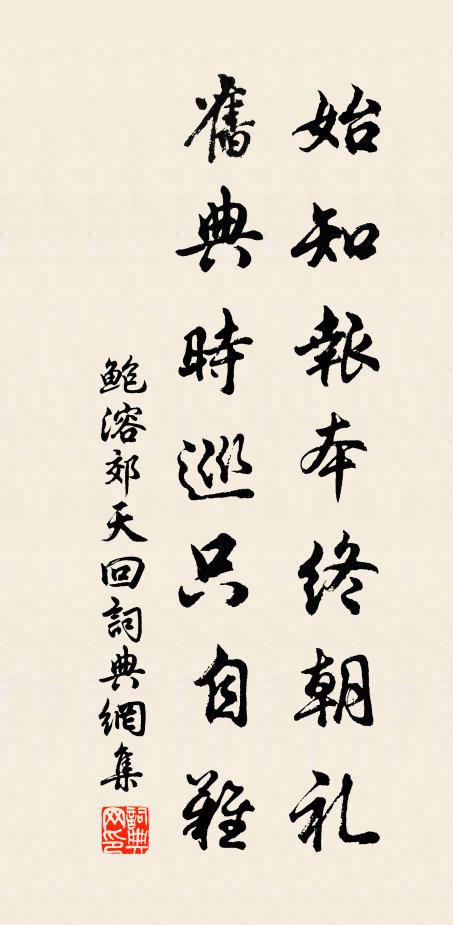 始知報本終朝礼
舊典時巡只自難
鮑溶郊天回詞典網集
詞典网印